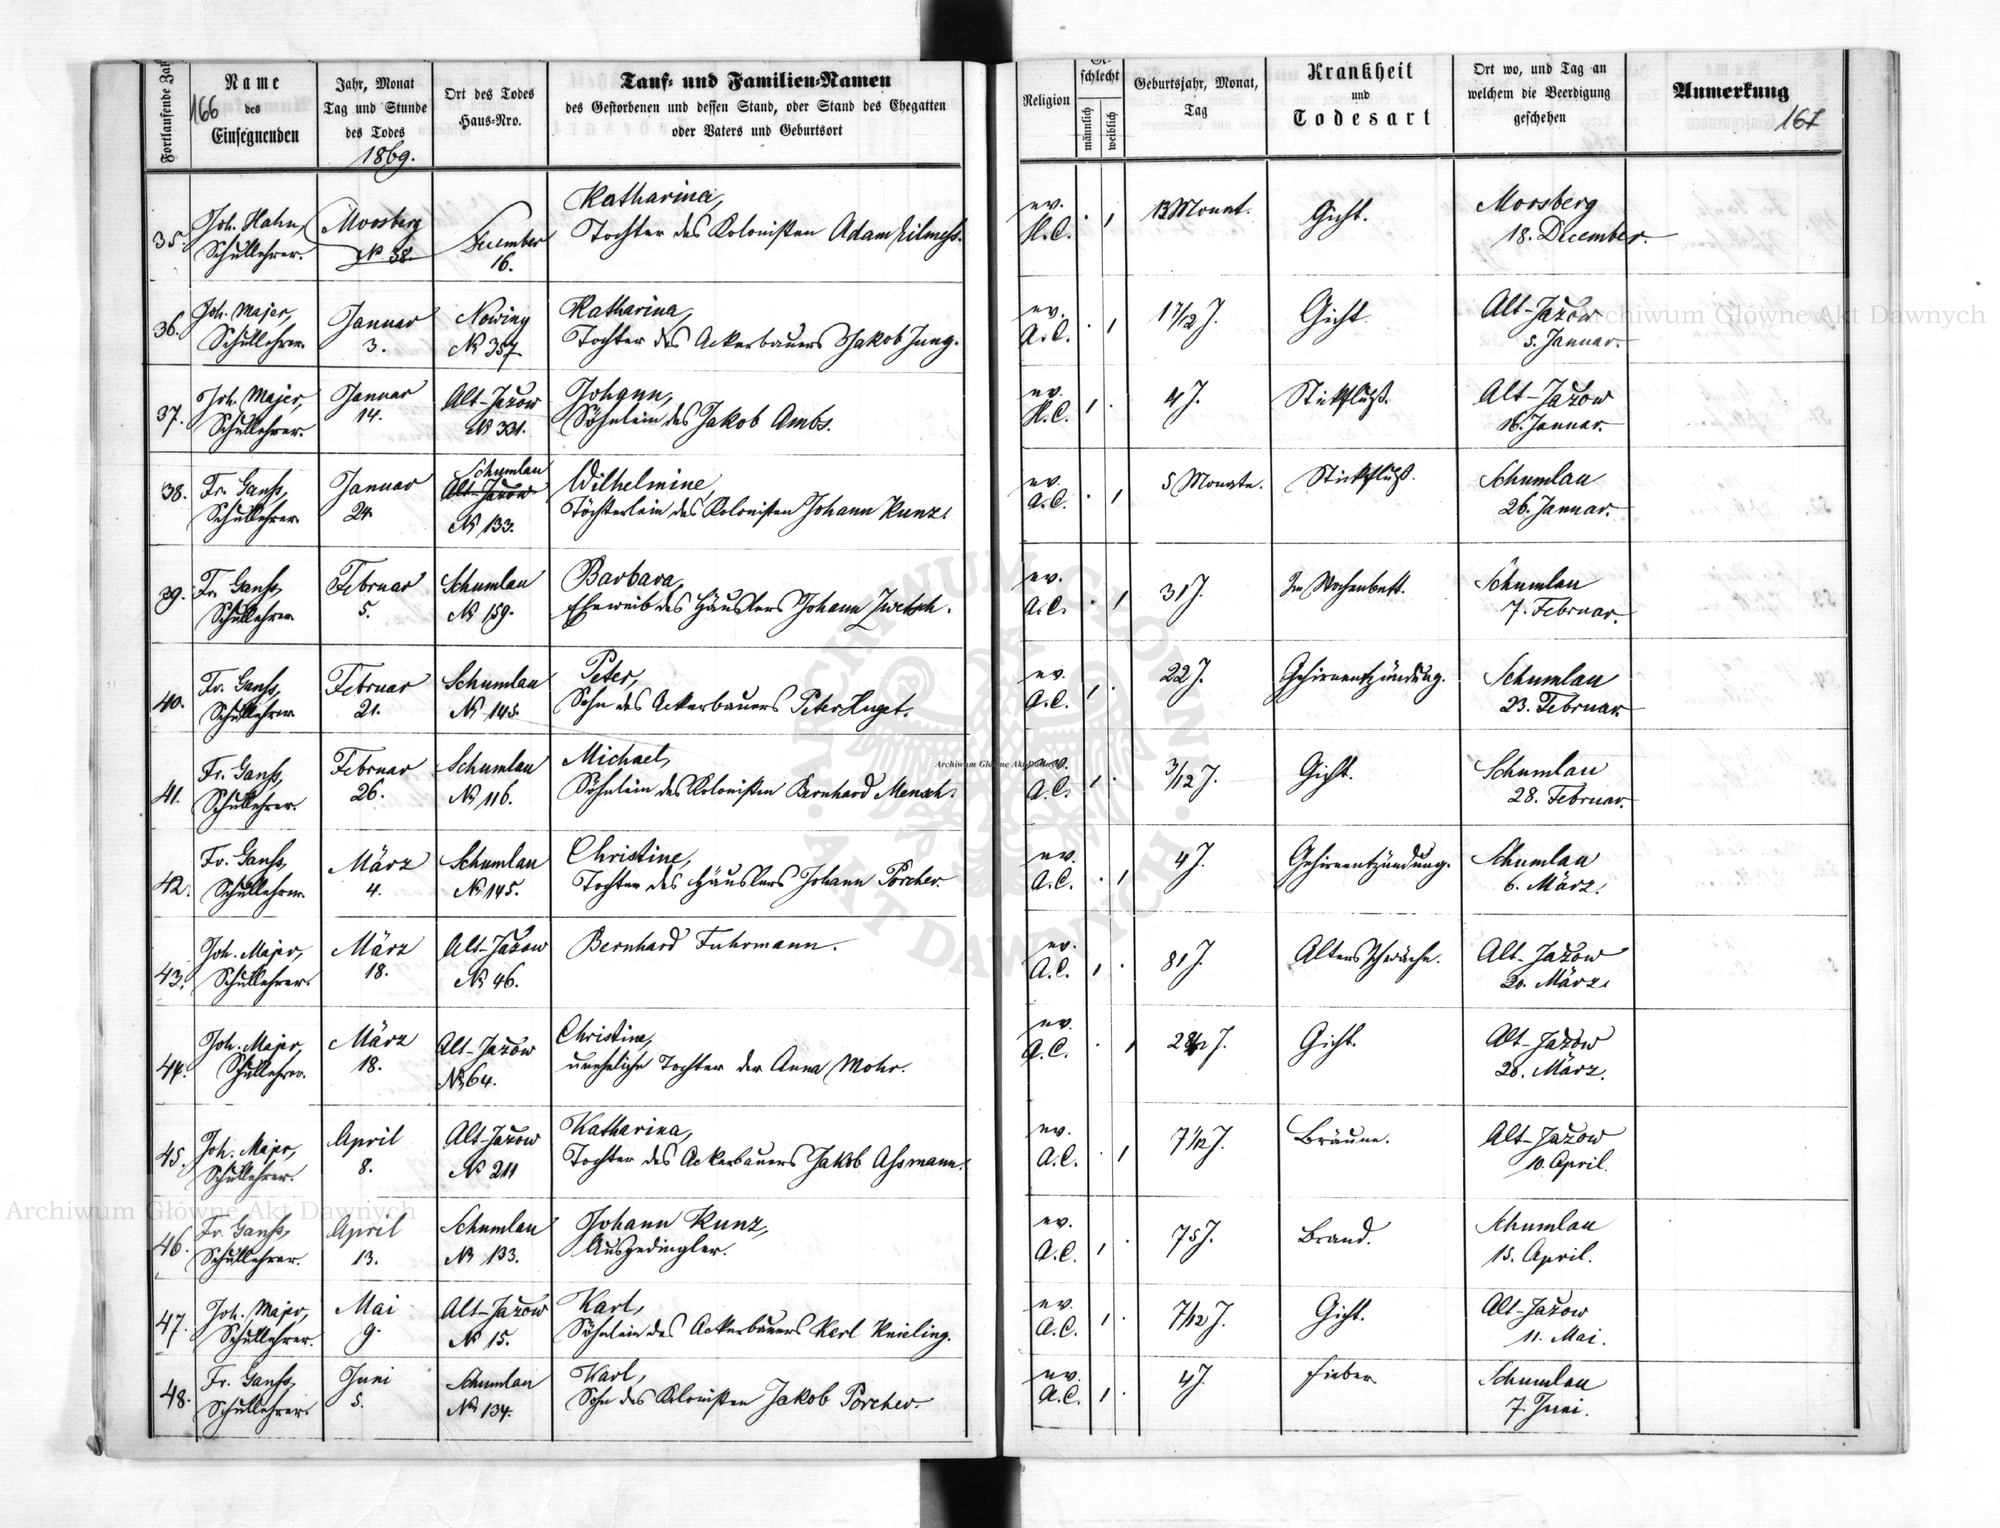 Fortlaufende Zahl
Name
des
Einsegnenden
166
Jahr, Monat
Tag und Stunde
des Todes
1869.
Ort des Todes
Haus-Nro.
Tauf- und Familien-Namen
des Gestorbenen und dessen Stand, oder Stand des Ehegatten
oder Vaters und Geburtsort
Religion
Ge-
schlecht
männlich
weiblich
Geburtsjahr, Monat,
Tag
Krankheit
und
Todesart
Ort wo, und Tag an
welchem die Beerdigung
geschehen
Anmerkung
167
35.
Joh. Hahn,
Schullehrer.
Moosberg
No 38.
December
16.
Katharina,
Tochter des Kolonisten Adam
ev.
H.C.
13 Monat.
Gicht.
Moosberg
18. December.
36.
Joh. Majer,
Schullehrer.
Januar
3.
Nowiny
No 357
Katharina,
Tochter des Ackerbauers Jakob Jung.
ev.
A.C.
1 7/12 J.
Gicht.
Alt-Jazow
5. Januar.
37.
Joh. Majer,
Schullehrer.
Januar
14.
Alt-Jazow
No 331.
Johann,
Söhnlein des Jakob Ambs.
ev.
H.C.
4 J.
Stickfluß.
Alt-Jazow
16. Januar.
38.
Fr. Ganß,
Schullehrer
Januar
24.
Schumlau
Alt-Jazow
No 133.
Wilhelmine,
Töchterlein des Kolonisten Johann Kunz.
ev.
A.C.
5 Monate.
Stickfluß.
Schumlau
26. Januar.
39.
Fr. Ganß,
Schullehrer
Februar
5.
Schumlau
No 159.
Barbara,
Eheweib des Häuslers Johann Zwetsch.
ev.
A.C.
31 J.
Im Wochenbett.
Schumlau
7. Februar.
40.
Fr. Ganß,
Schullehrer
Februar
21.
Schumlau
No 145.
Peter,
Sohn des Ackerbauers Peter Huget.
ev.
A.C.
22 J.
Gehirnentzündung.
Schumlau
23. Februar.
41.
Fr. Ganß,
Schullehrer.
Februar
26.
Schumlau
No 116.
Michael,
Söhnlein des Kolonisten Bernhard Mensch.
ev.
A.C.
3/12 J.
Gicht.
Schumlau
28. Februar.
42.
Fr. Ganß,
Schullehrer.
März
4.
Schumlau
No 145.
Christine,
Tochter des Häuslers Johann Porcher.
ev.
A.C.
4 J.
Gehirnentzündung.
Schumlau
6. März.
43.
Joh. Majer,
Schullehrer.
März
18.
Alt-Jazow
No 46.
Bernhard Fuhrmann.
ev.
A.C.
81 J.
Altersschwäche.
Alt-Jazow
20. März.
44.
Joh. Majer,
Schullehrer.
März
18.
Alt-Jazow
No 64.
Christina,
uneheliche Tochter der Anna Mohr.
ev.
A.C.
Gicht.
Alt-Jazow
20. März.
45.
Joh. Majer,
Schullehrer.
April
8.
Alt-Jazow
No 211
Katharina,
Tochter des Ackerbauers Jakob Assmann.
ev.
A.C.
7 1/12 J.
Bräune.
Alt-Jazow
10. April.
46.
Fr. Ganß,
Schullehrer.
April
13.
Schumlau
No 133.
Johann Kunz,
Ausgedingler.
ev.
A.C.
75 J.
Brand.
Schumlau
15. April.
47.
Joh. Majer,
Schullehrer.
Mai
9.
Alt-Jazow
No 15.
Karl,
Söhnlein des Ackerbauers Karl Knieling.
ev.
A.C.
7/12 J.
Gicht.
Alt-Jazow
11. Mai.
48.
Fr. Ganß,
Schullehrer.
Juni
5.
Schumlau
No 134.
Karl,
Sohn des Kolonisten Jakob Porcher.
ev.
A.C.
4 J.
Fieber
Schumlau
7. Juni.
Archiwum Główne Akt Dawnych
Archiwum Główne Akt Dawnych
Archiwum Główne Akt Dawnych
ARCHIWUM GŁÓWNE AKT DAWNYCH